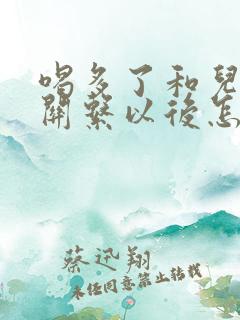 喝多了和兒
關繫以後怎
蔡迅翔
未经同意禁止转载